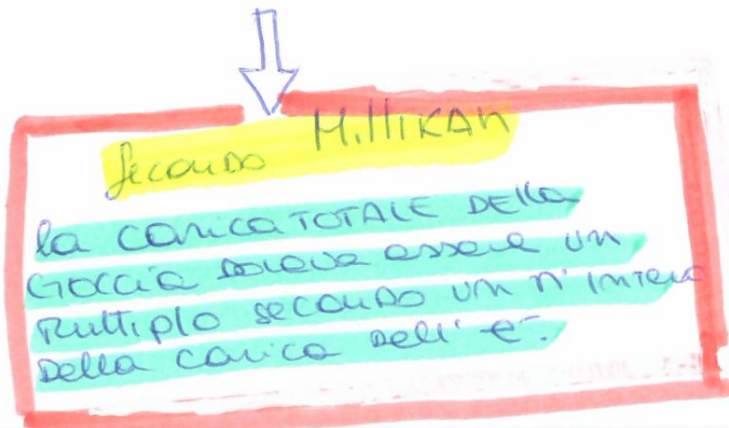 secondo MillIKAN
la carica TOTALE DEllA
GOCCIA DOVEVA essere UN
Multiplo secondo UN n° INTERO
Della carica dell' e⁻.